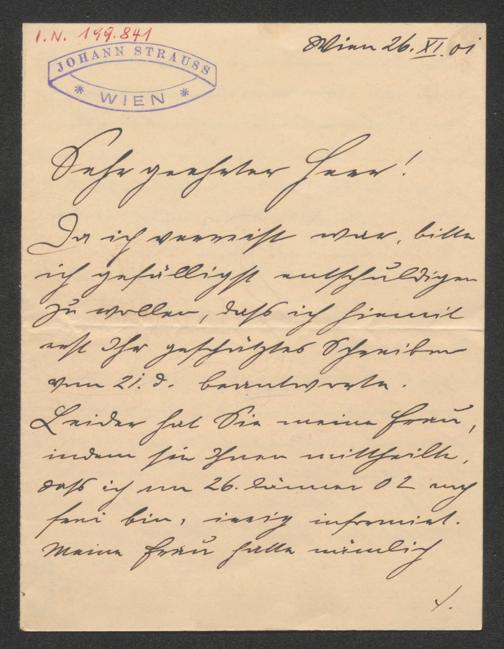 I.N. 199.841
JOHANN STRAUSS
* WIEN *
Wien 26. XI. 01
Sehr geehrter Herr!
Da ich verreist war, bitte
ich gefälligst entschuldigen
zu wollen, dass ich hiemit
erst Ihr geschätztes Schreiben
vom 21. d. beantworte.
Leider hat Sie meine Frau,
indem sie Ihnen mittheilte,
dass ich am 26. Jänner 02 noch
frei bin, irrig informirt.
Meine Frau hatte nämlich
./.